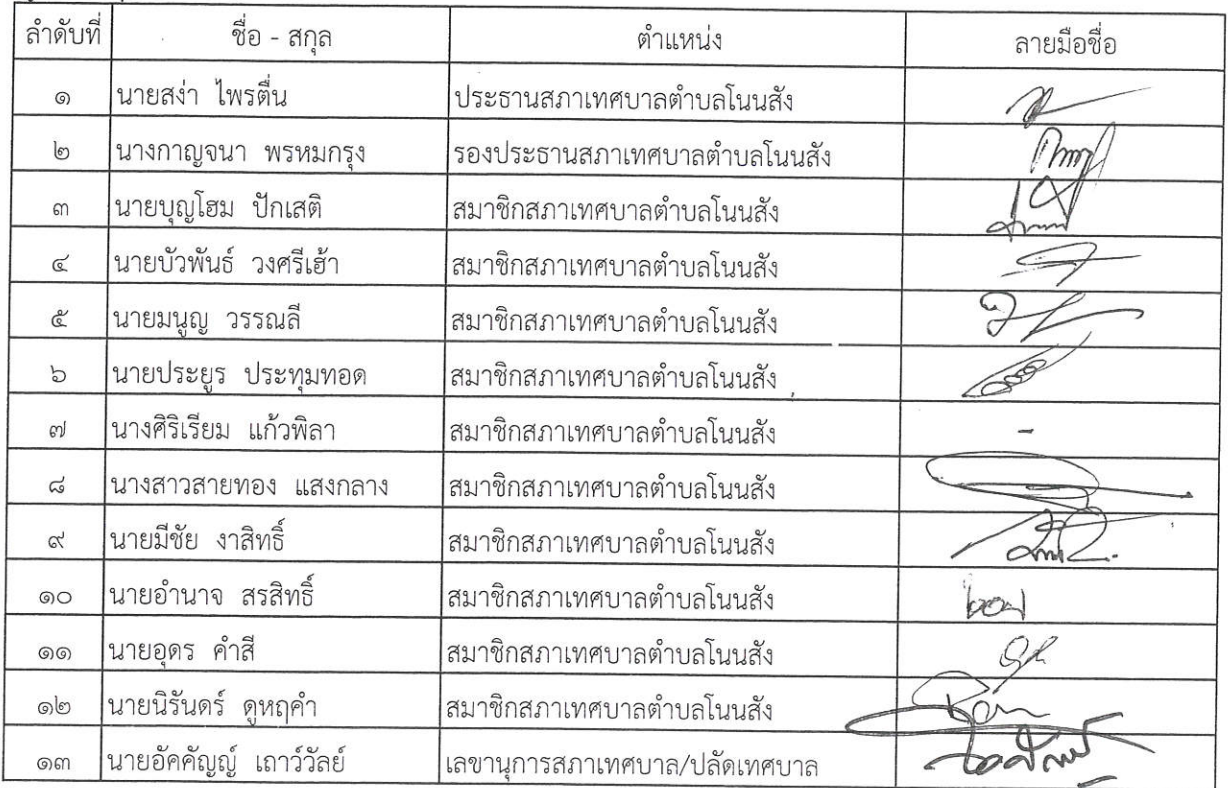 ลำดับที่ ชื่อ - สกุล ตำแหน่ง ลายมือชื่อ
๑ นายสง่า ไพรตื่น ประธานสภาเทศบาลตำบลโนนสัง
๒ นางกาญจนา พรหมกรุง รองประธานสภาเทศบาลตำบลโนนสัง
๓ นายบุญโฮม ปักเสติ สมาชิกสภาเทศบาลตำบลโนนสัง
๔ นายบัวพันธ์ วงศรีเฮ้า สมาชิกสภาเทศบาลตำบลโนนสัง
๕ นายมนูญ วรรณลี สมาชิกสภาเทศบาลตำบลโนนสัง
๖ นายประยูร ประทุมทอด สมาชิกสภาเทศบาลตำบลโนนสัง
๗ นางศิริเรียม แก้วพิลา สมาชิกสภาเทศบาลตำบลโนนสัง -
๘ นางสาวสายทอง แสงกลาง สมาชิกสภาเทศบาลตำบลโนนสัง
๙ นายมีชัย งาสิทธิ์ สมาชิกสภาเทศบาลตำบลโนนสัง
๑๐ นายอำนาจ สรสิทธิ์ สมาชิกสภาเทศบาลตำบลโนนสัง
๑๑ นายอุดร คำสี สมาชิกสภาเทศบาลตำบลโนนสัง
๑๒ นายนิรันดร์ ดูหฤคำ สมาชิกสภาเทศบาลตำบลโนนสัง
๑๓ นายอัคคัญญ์ เถาว์วัลย์ เลขานุการสภาเทศบาล/ปลัดเทศบาล